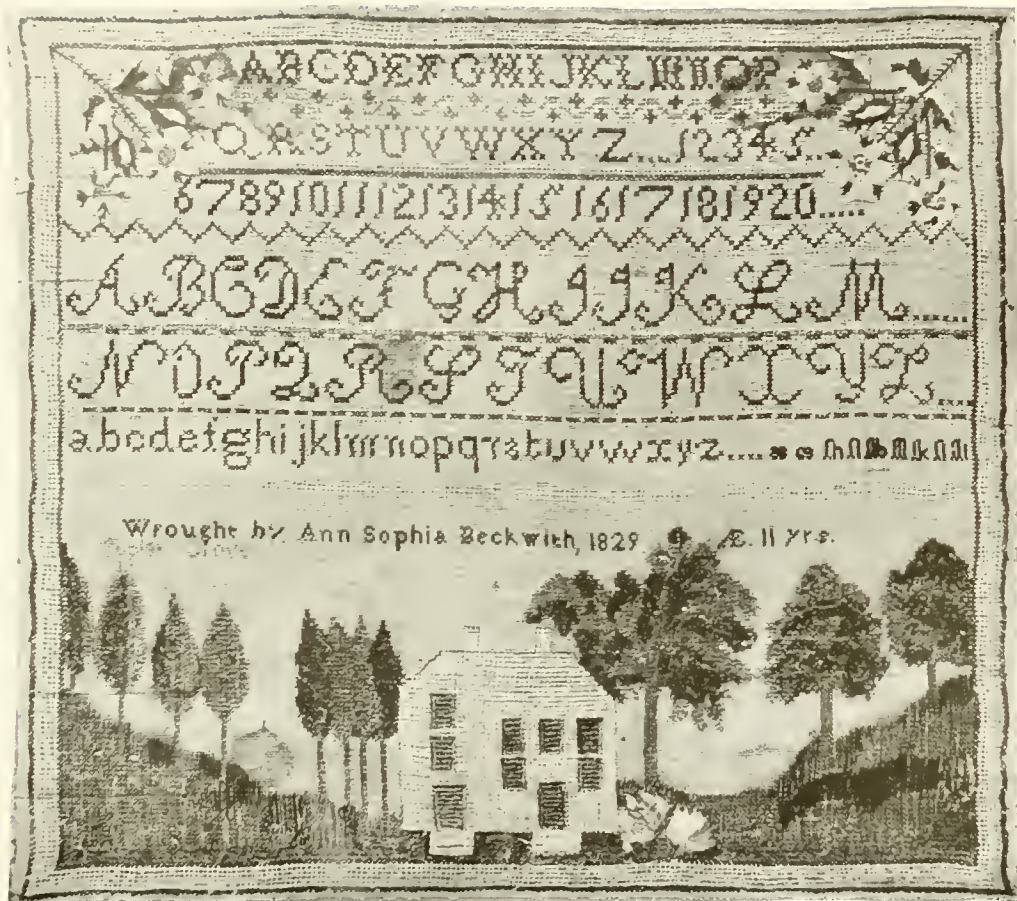 ABCDEFGHIJKLMNOP
QRSTUVWXYZ....12345..
67891011121314151617181920.....
ABCDEFGHIJKLM......
NOPQRSTUVWXYZ....
abcdefghijklmnopqrstuvwxyz....
Wrought by Ann Sophia Beckwith, 1829 Æ. 11 yrs.